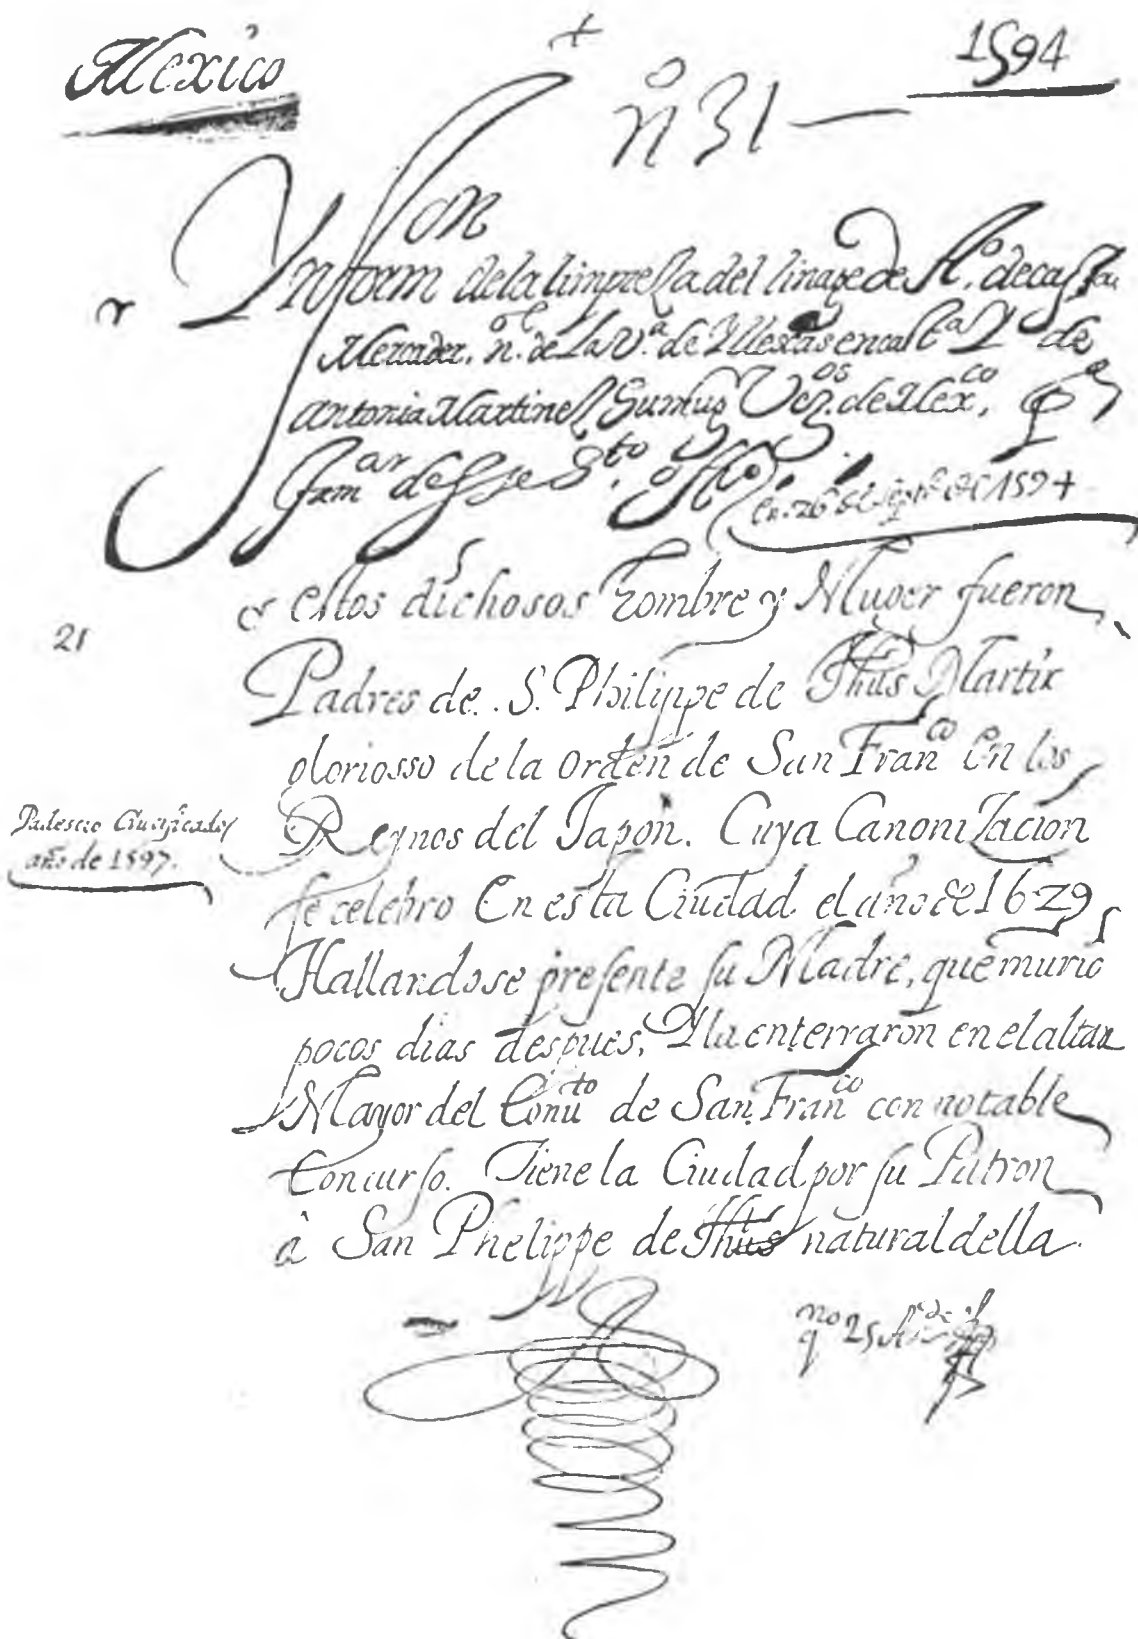 Mexico
+
1594
nº 31
on
Ynform dela limpieza del linage de Aº. de casas
Mercader. n.ºˡ de La Vª. de Yllescas en Castª Y de
antonia Martinez Su mug Vezºˢ. de Mexᶜᵒ,
famᵃʳ desse Sᵗᵒ. offº.
en. 26 de sepᵉ de 1594
estos dichosos hombre y Muger fueron
21
Padres de. S. Philippe de Jhus Martir
gloriosso de la orden de San Franᶜᵒ en los
Padescio Crucificado
año de 1597.
Reynos del Japon. Cuya Canonizacion
se celebro En esta Ciudad. el año de 1629
Hallandose presente su Madre, que murio
pocos dias despues, Y la enterraron en el altar
Mayor del Conuᵗᵒ de San Franᶜᵒ con notable
Concurso. Tiene la Ciudad por su Patron
à San Phelippe de Jhus natural della.